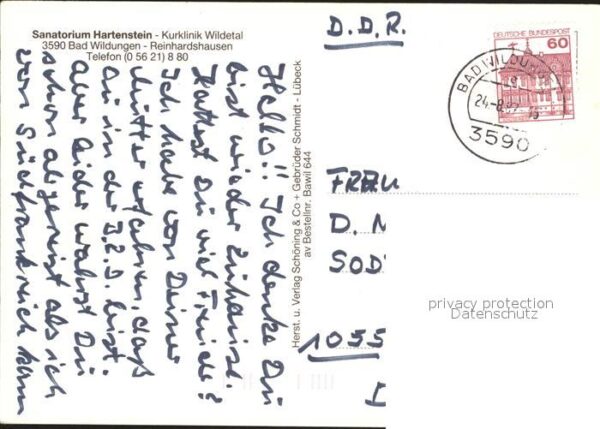 Sanatorium Hartenstein - Kurklinik Wildetal
3590 Bad Wildungen - Reinhardshausen
Telefon (0 56 21) 8 80
Hello!! Ich denke Du
bist wieder zuhause.
Hattest Du viel Freude?
Ich habe von Deiner
Mutter erfahren, daß
Du in der B.R.D. bist.
Aber leider warst Du
schon abgereist als ich
von Südfrankreich kam
Herst. u. Verlag Schöning & Co + Gebrüder Schmidt - Lübeck
av Bestellnr. Bawil 644
D.D.R.
DEUTSCHE BUNDESPOST
60
BAD WILDUN
24.-8.87
3590
FRAU
D. M
SOD
1055
privacy protection
Datenschutz